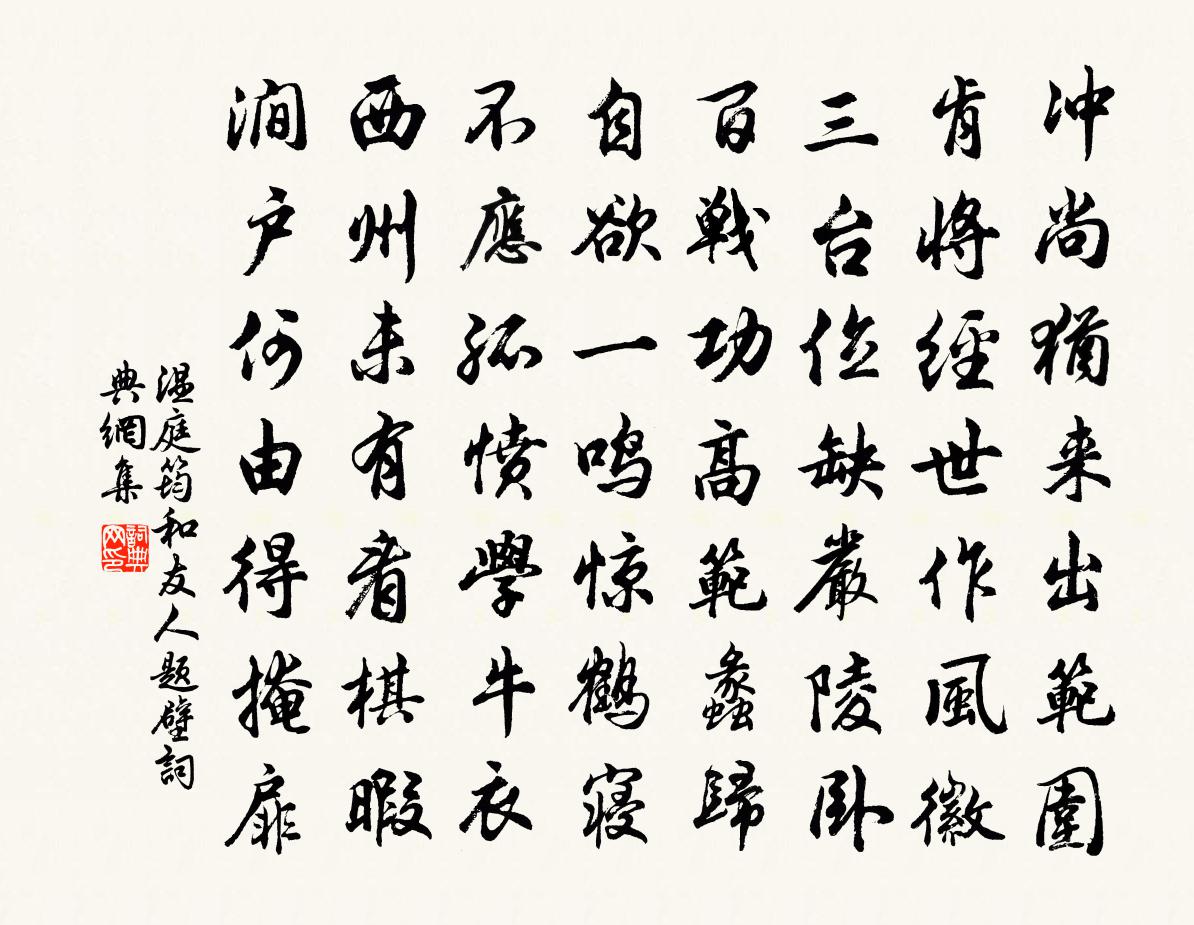 冲尚猶来出範圍
肯將經世作風徽
三台位缺嚴陵卧
百戦功高範蠡歸
自欲一鳴惊鶴寝
不應孤憤學牛衣
西州未有看棋暇
澗户何由得掩扉
温庭筠和友人题壁詞
典網集
詞典
网印